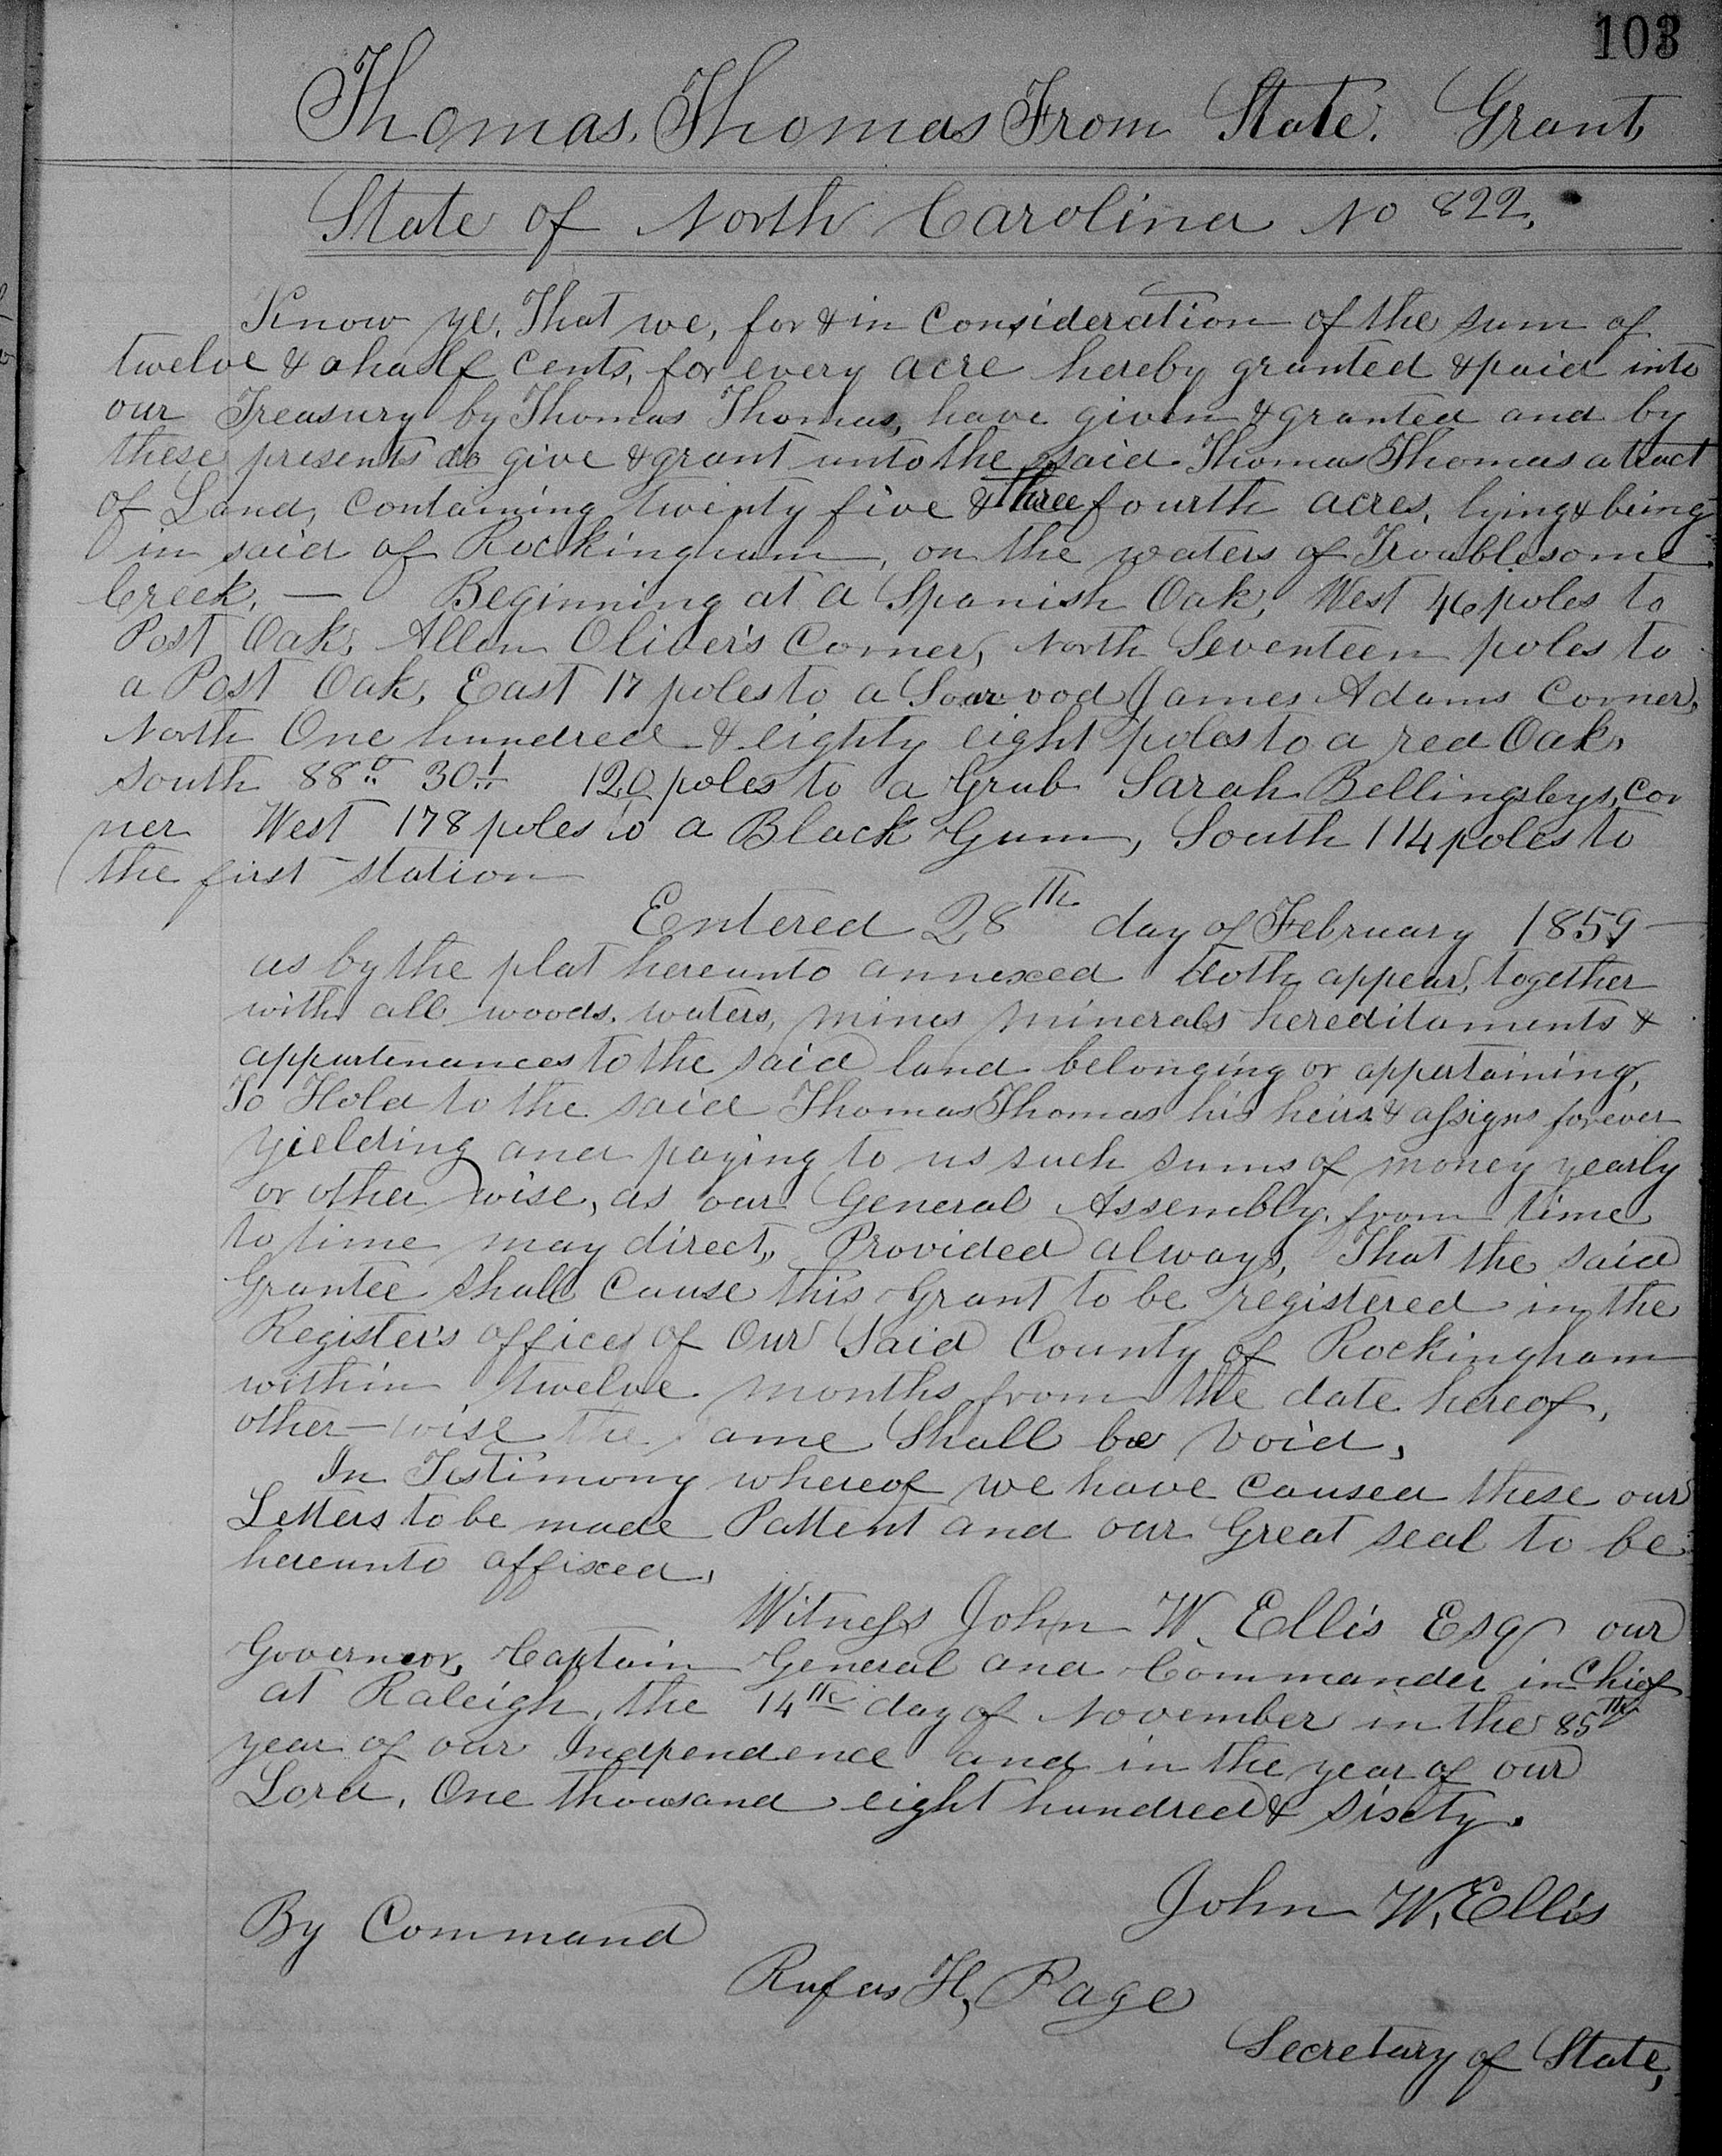 103
Thomas. Thomas From State. Grant,
State of North Carolina No 822.
Know ye, That we, for & in Consideration of the sum of
twelve & a half cents, for every acre hereby granted & paid into
our Treasury by Thomas Thomas, have given & granted and by
these presents do give & grant unto the said Thomas Thomas a tract
of Land, Containing twenty five & three fourth acres, lying & being
in said of Rockingham, on the waters of Troublesome
Creek. — Beginning at a Spanish Oak, West 46 poles to
Post Oak, Allen Oliver's Corner, North Seventeen poles to
a Post Oak, East 17 poles to a Sourwood James Adams Corner,
North One hundred & eighty eight poles to a red Oak,
South 88° 30' 120 poles to a Grub Sarah Bellingsleys, Cor
ner West 178 poles to a Black Gum, South 114 poles to
the first station
Entered 28th day of February 1859
as by the plat hereunto annexed doth appear, together
with all woods, waters, mines minerals hereditaments &
appurtenances to the said land belonging or appertaining,
To Hold to the said Thomas Thomas his heirs & assigns forever
Yielding and paying to us such sums of money yearly
or other wise, as our General Assembly, from time
to time may direct, Provided always, That the said
Grantee shall Cause this Grant to be registered in the
Register's office of Our Said County of Rockingham
within twelve months from the date hereof,
other-wise the same Shall be void,
In Testimony whereof we have caused these our
Letters to be made Pattent and our Great seal to be
hereunto affixed,
Witness John W. Ellis Esq our
Governor, Captain General and Commander in Chief
at Raleigh, the 14th day of November in the 85th
year of our Indpendence and in the year of our
Lord, One thousand eight hundred & sixty.
John W. Ellis
By Command
Rufus H, Page
Secretary of State,